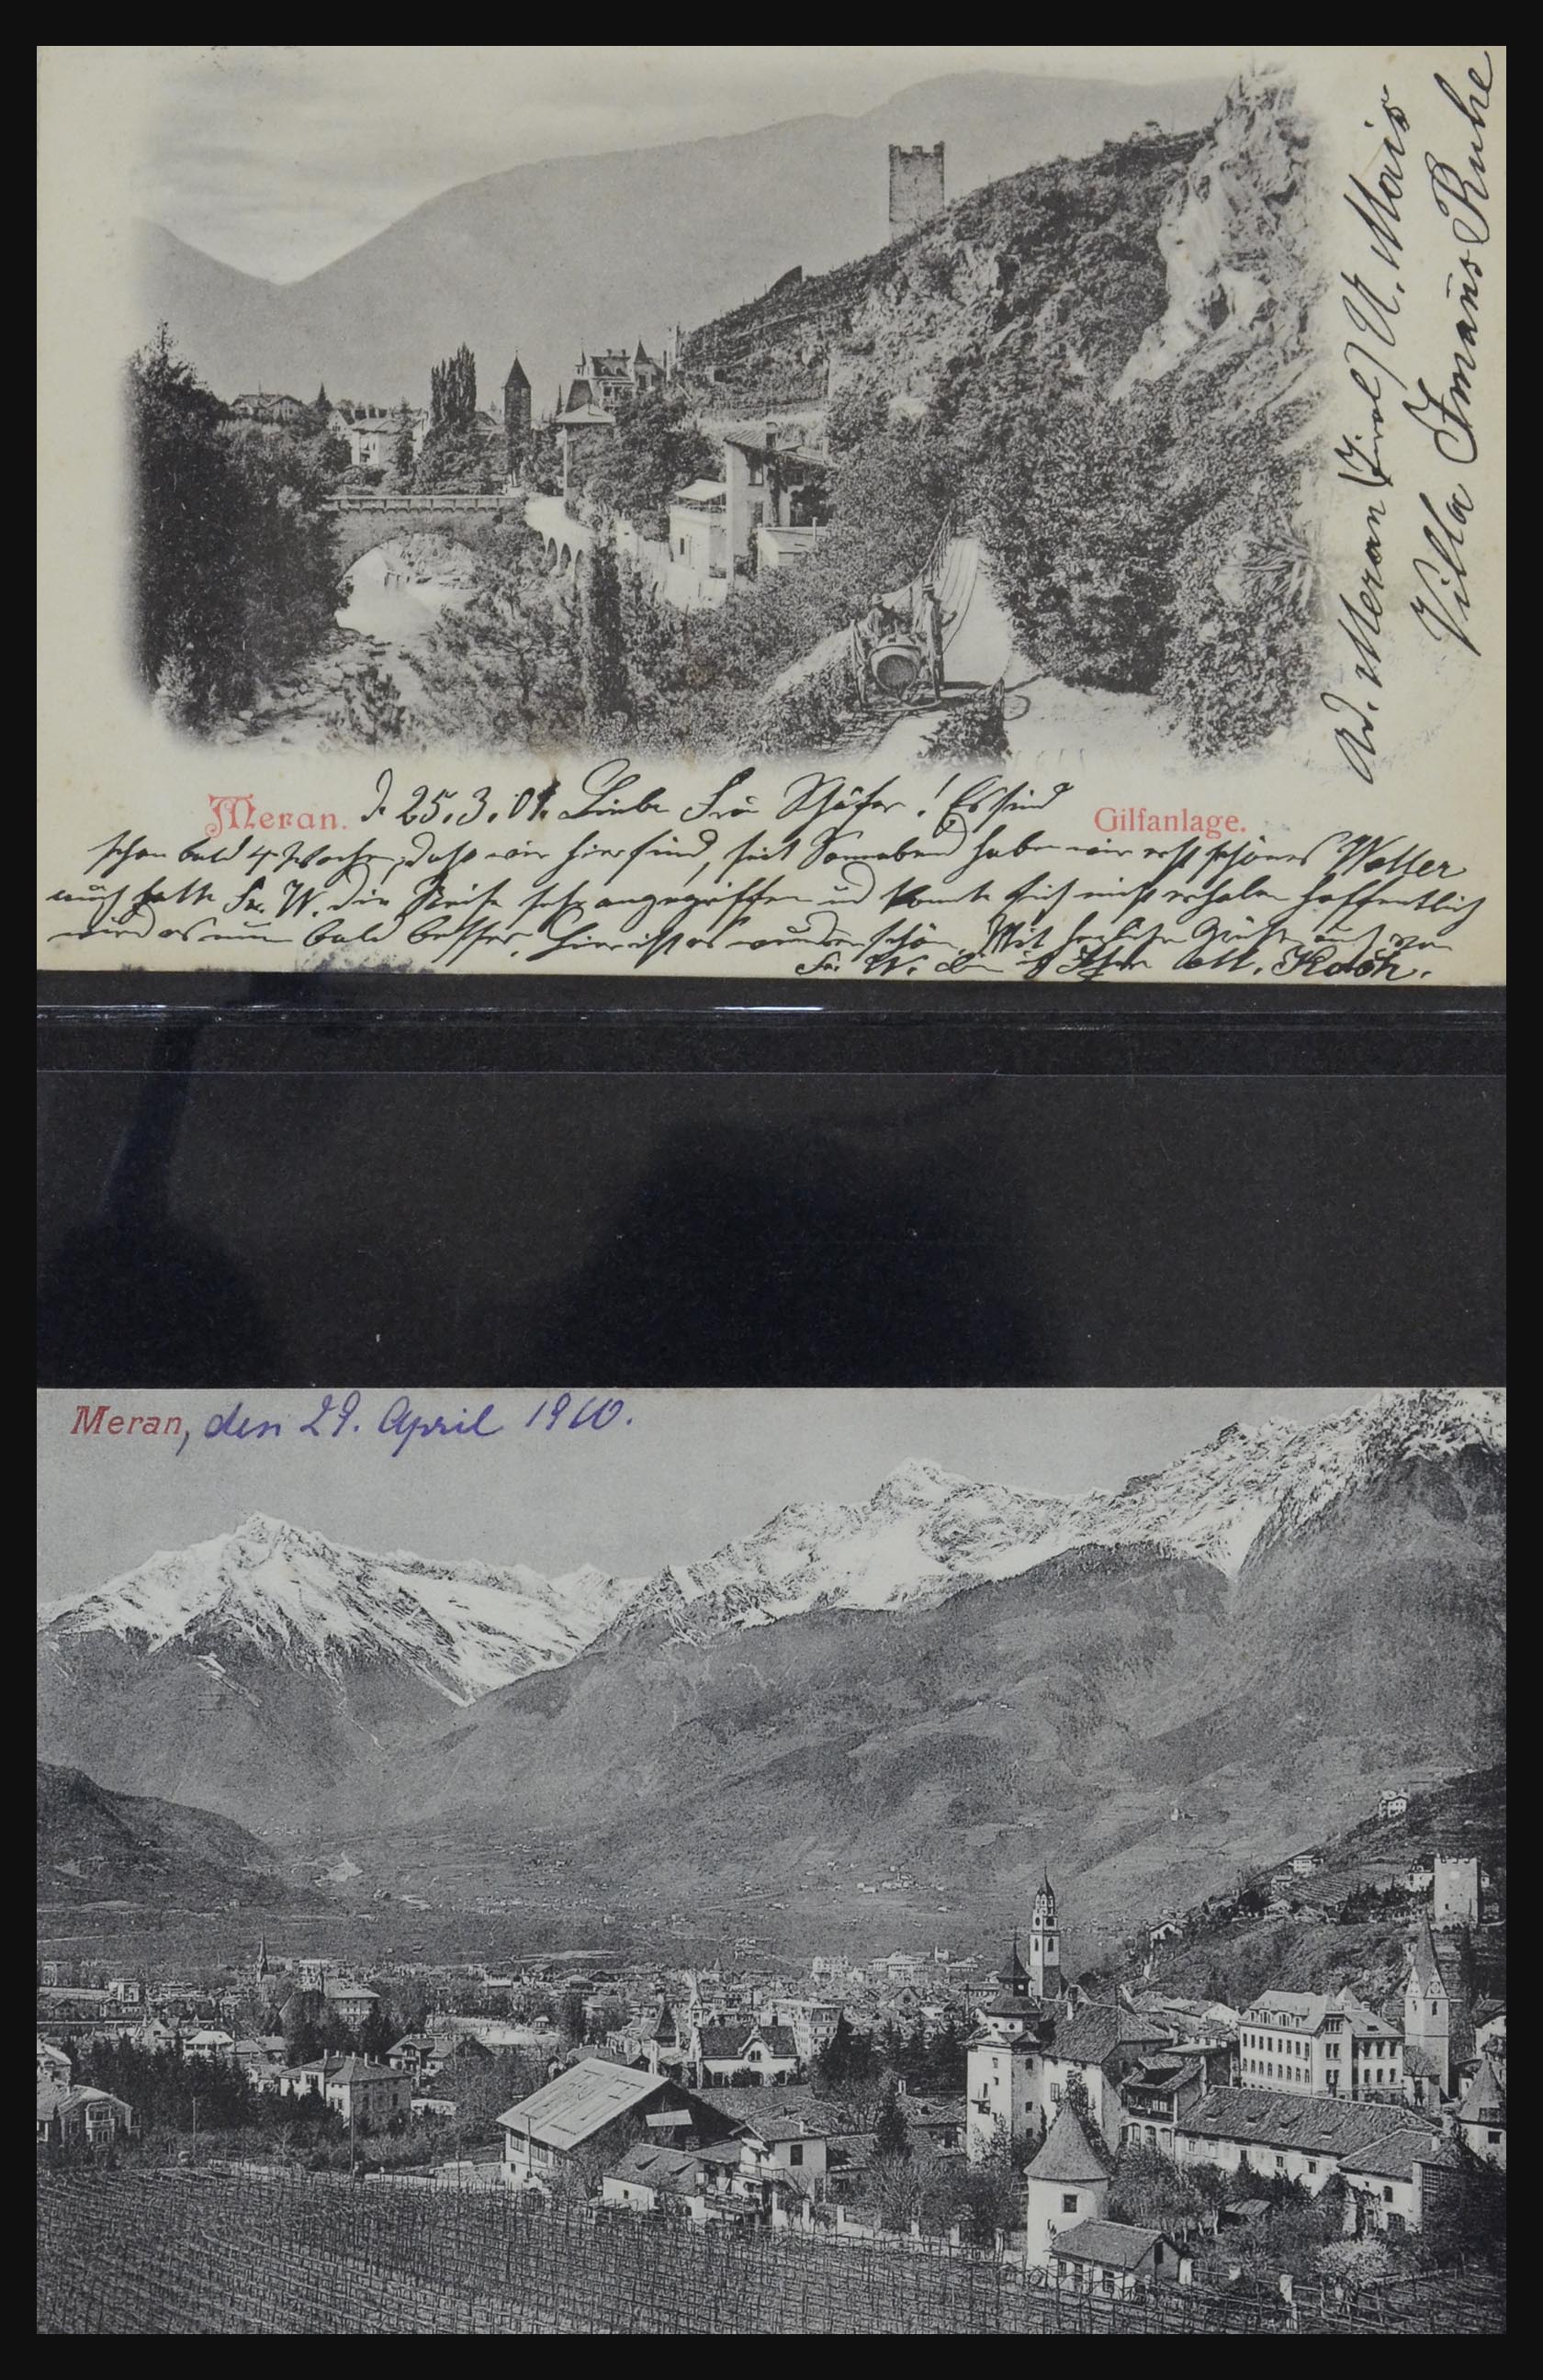 Meran.
Gilfanlage.
d. 25.3.01. Liebe Frau Schäfer! Es sind
schon bald 4 Wochen, daß wir hier sind, seit Sonnabend haben wir erst schönes Wetter
auch hatte Fr. W. die Reise sehr angegriffen und konnte sich nicht erholen hoffentlich
wird es nun bald besser. Hier ist es wunderschön. Mit herzlichen Grüßen auch von
Fr. W. bin ich Ihre M. Koch.
Ad. Meran (Tirol) U. Mais
Villa Imans Ruhe
Meran, den 29. April 1910.